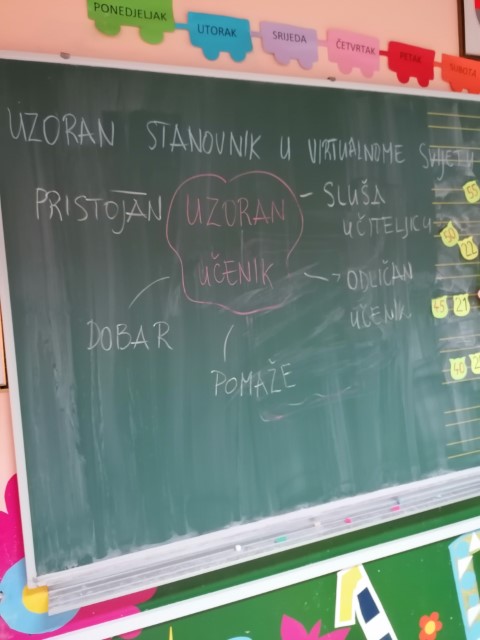 PONEDJELJAK
UTORAK
SRIJEDA
ČETVRTAK
PETAK
SUBOTA
UZORAN STANOVNIK U VIRTUALNOME SVIJETU
PRISTOJAN
UZORAN
UČENIK
SLUŠA
UČITELJICU
ODLIČAN
UČENIK
DOBAR
POMAŽE
55
22
45
21
40